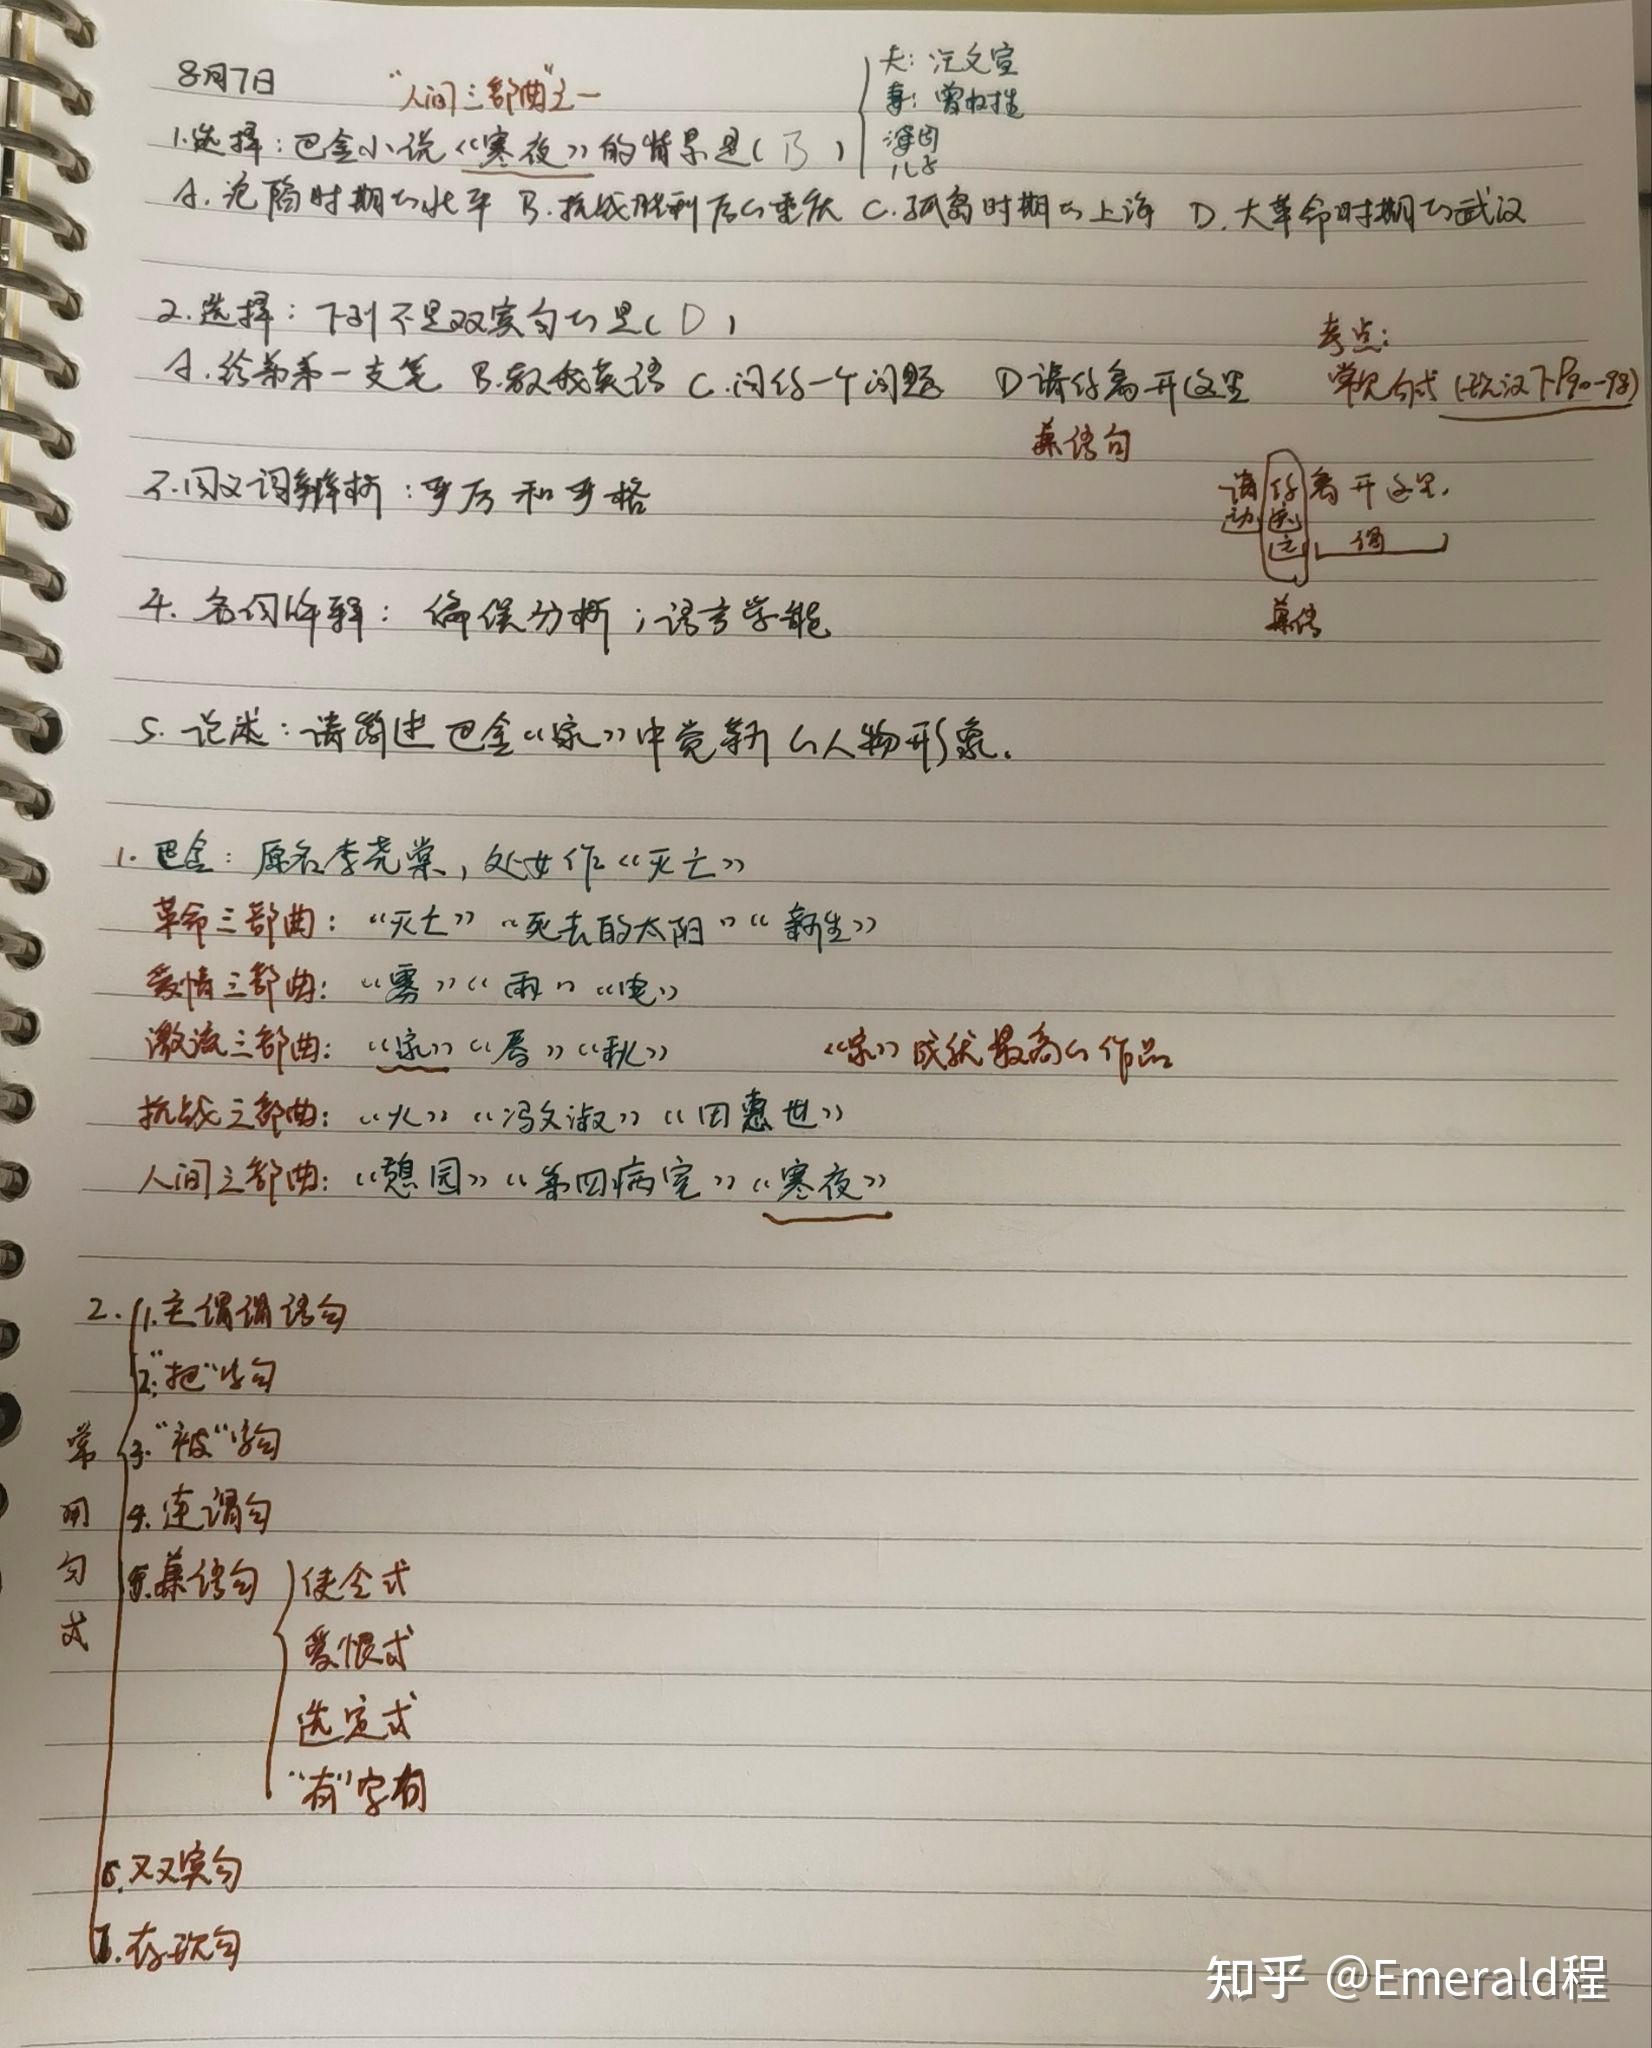 8月7日
"人间三部曲"之一
夫：汪文宣
妻：曾树生
婆母
儿子
1.选择：巴金小说《寒夜》的背景是（B）
A.沦陷时期的北平 B.抗战胜利后的重庆 C.孤岛时期的上海 D.大革命时期的武汉
2.选择：下列不是双宾句的是（D）
A.给弟弟一支笔 B.教我英语 C.问你一个问题 D请你离开这里
兼语句
考点：
常见句式（现汉下P90-98）
请你离开这里.
动 宾
主 谓
兼语
3.同义词辨析：严厉和严格
4.名词解释：偏误分析；语言学能
5.论述：请简述巴金《家》中觉新的人物形象.
1.巴金：原名李尧棠，处女作《灭亡》
革命三部曲：《灭亡》《死去的太阳》《新生》
爱情三部曲：《雾》《雨》《电》
激流三部曲：《家》《春》《秋》 《家》成就最高的作品
抗战三部曲：《火》《冯文淑》《田惠世》
人间三部曲：《憩园》《第四病室》《寒夜》
2.
常用句式
1.主谓谓语句
2."把"字句
3."被"字句
4.连谓句
5.兼语句
使令式
爱恨式
选定式
"有"字句
6.双宾句
7.存现句
知乎 @Emerald程